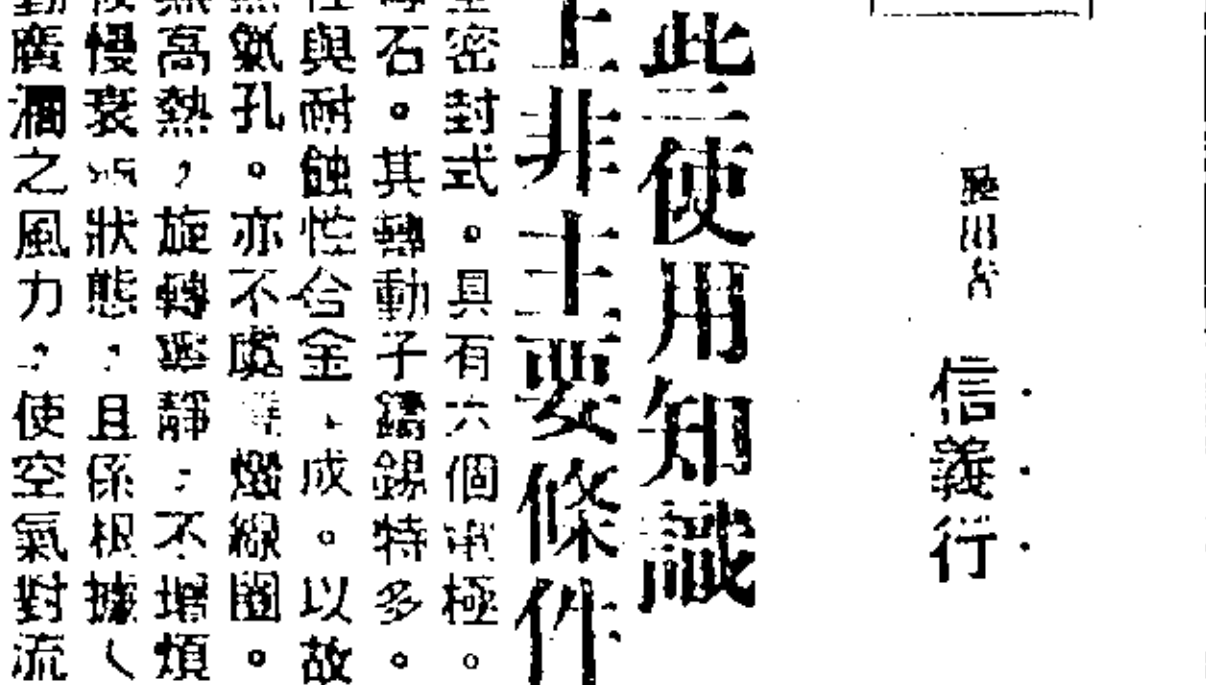 信義行
此三使用知識
上非主要條件
密封式。具有六個電極。
石。其轉動子鑄錫特多。
與耐蝕性合金、成。以故
氣孔。亦不虞燃線圈。
高熱，旋轉靜；不增煩
慢衰狀態，且係根據
廣濶之風力，使空氣對流